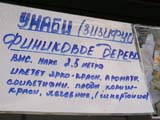 УНАБИ (ЗИЗИФУС)
ФИНИКОВОЕ ДЕРЕВО
ВЫС. МАКС 2.5 МЕТРА
ЦВЕТЕТ ЯРКО-КРАСН. АРОМАТН.
СОЦВЕТИЯМИ. ПЛОДЫ КОРИЧН-
КРАСН. ЛЕЧЕБНЫЕ, (ГИПЕРТОНИЯ)